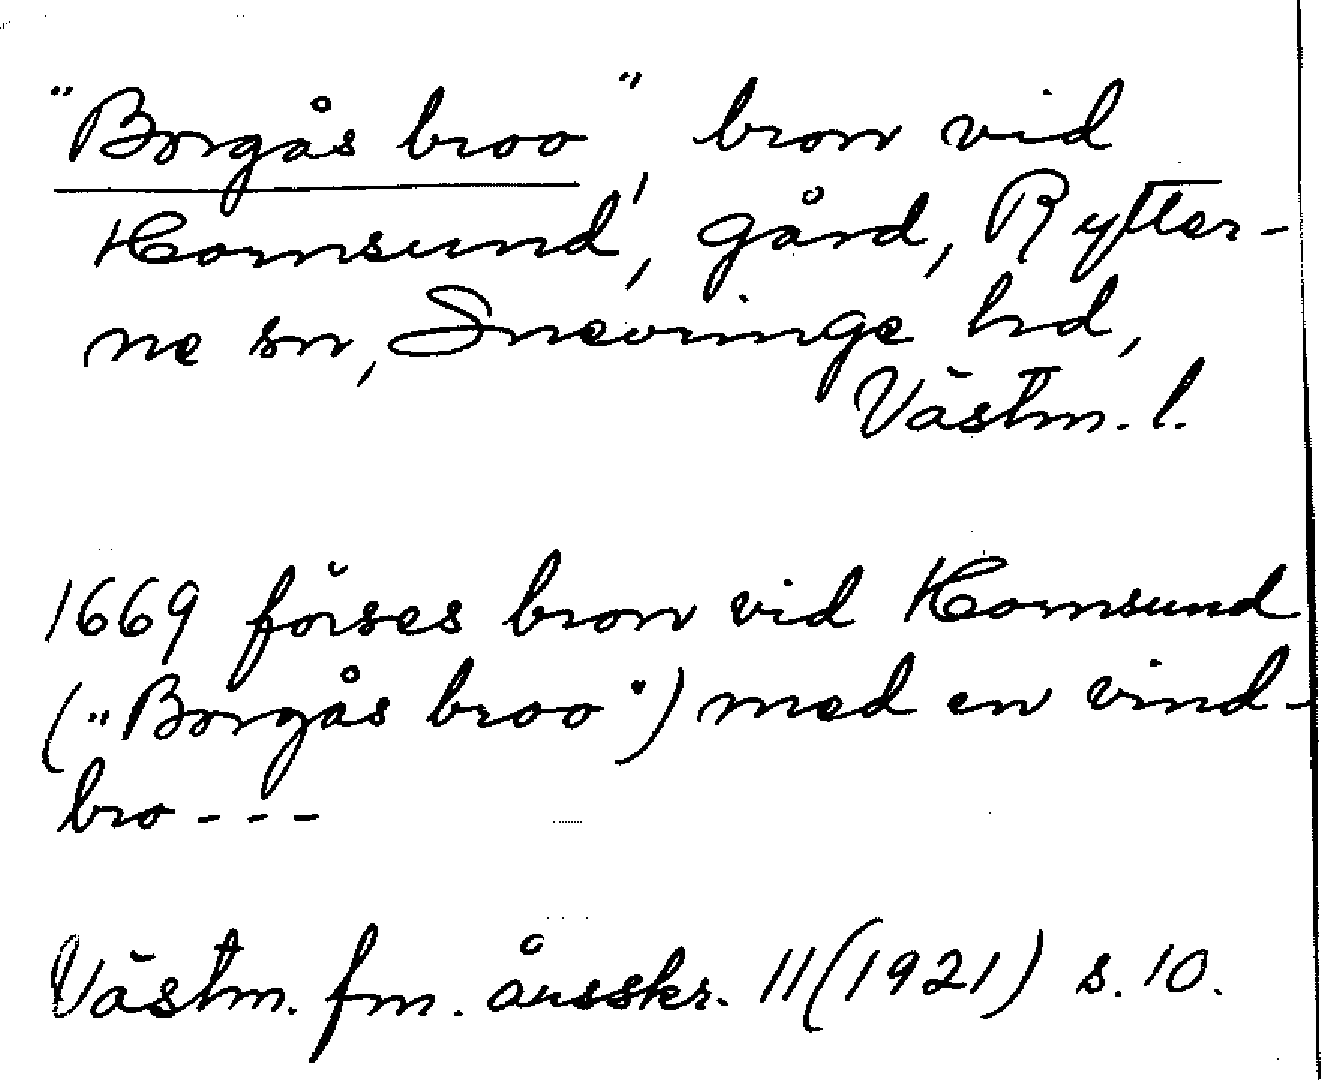 "Borgås broo", bron vid
Hornsund, gård, Rytter-
ne sn, Snevringe hd,
Västm. l.
1669 förses bron vid Hornsund
("Borgås broo") med en vind-
bro - - -
Västm. fm. årsskr. 11 (1921) s. 10.